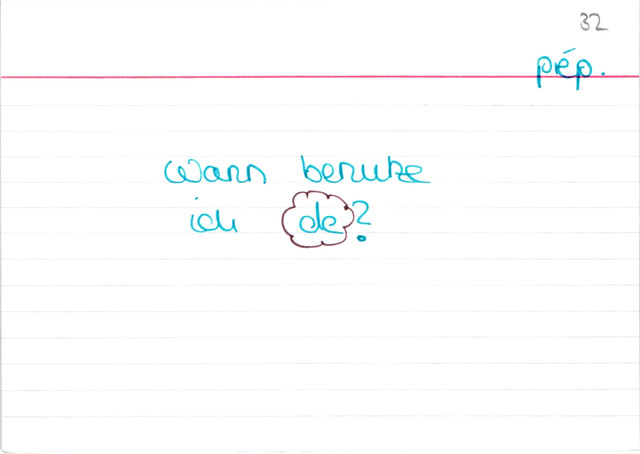 32
prép.
Wann benutze
ich de?